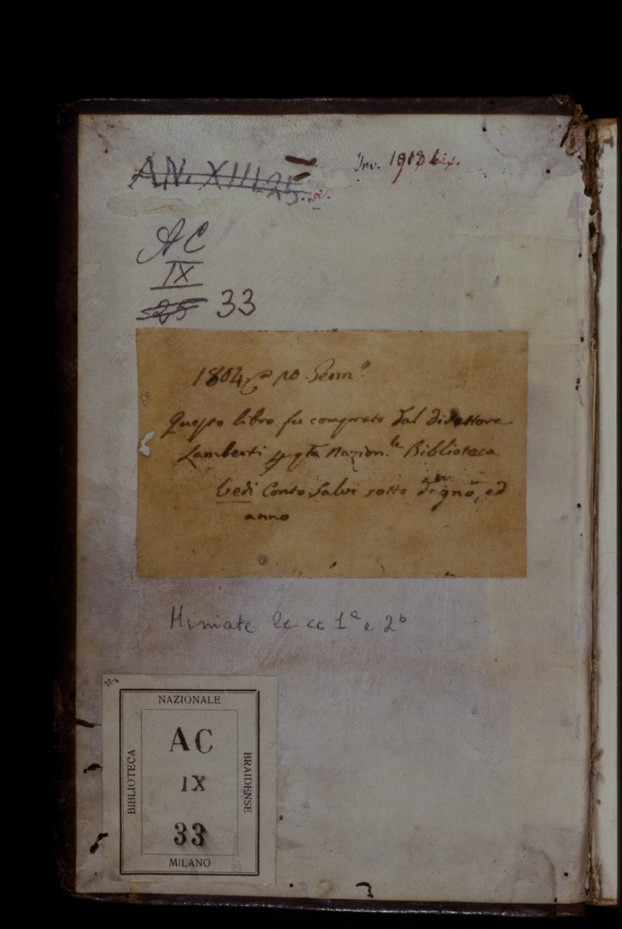 AN. XIII.25.
Inv. 1908 bis.
AC
IX
25 33
1804
Questo libro fu comprato dal direttore
Lamberti Nazion.le Biblioteca
Vedi Conto Salvi sotto ed
anno
Miniate le cc 1a e 2b
NAZIONALE
BIBLIOTECA
AC
IX
33
BRAIDENSE
MILANO